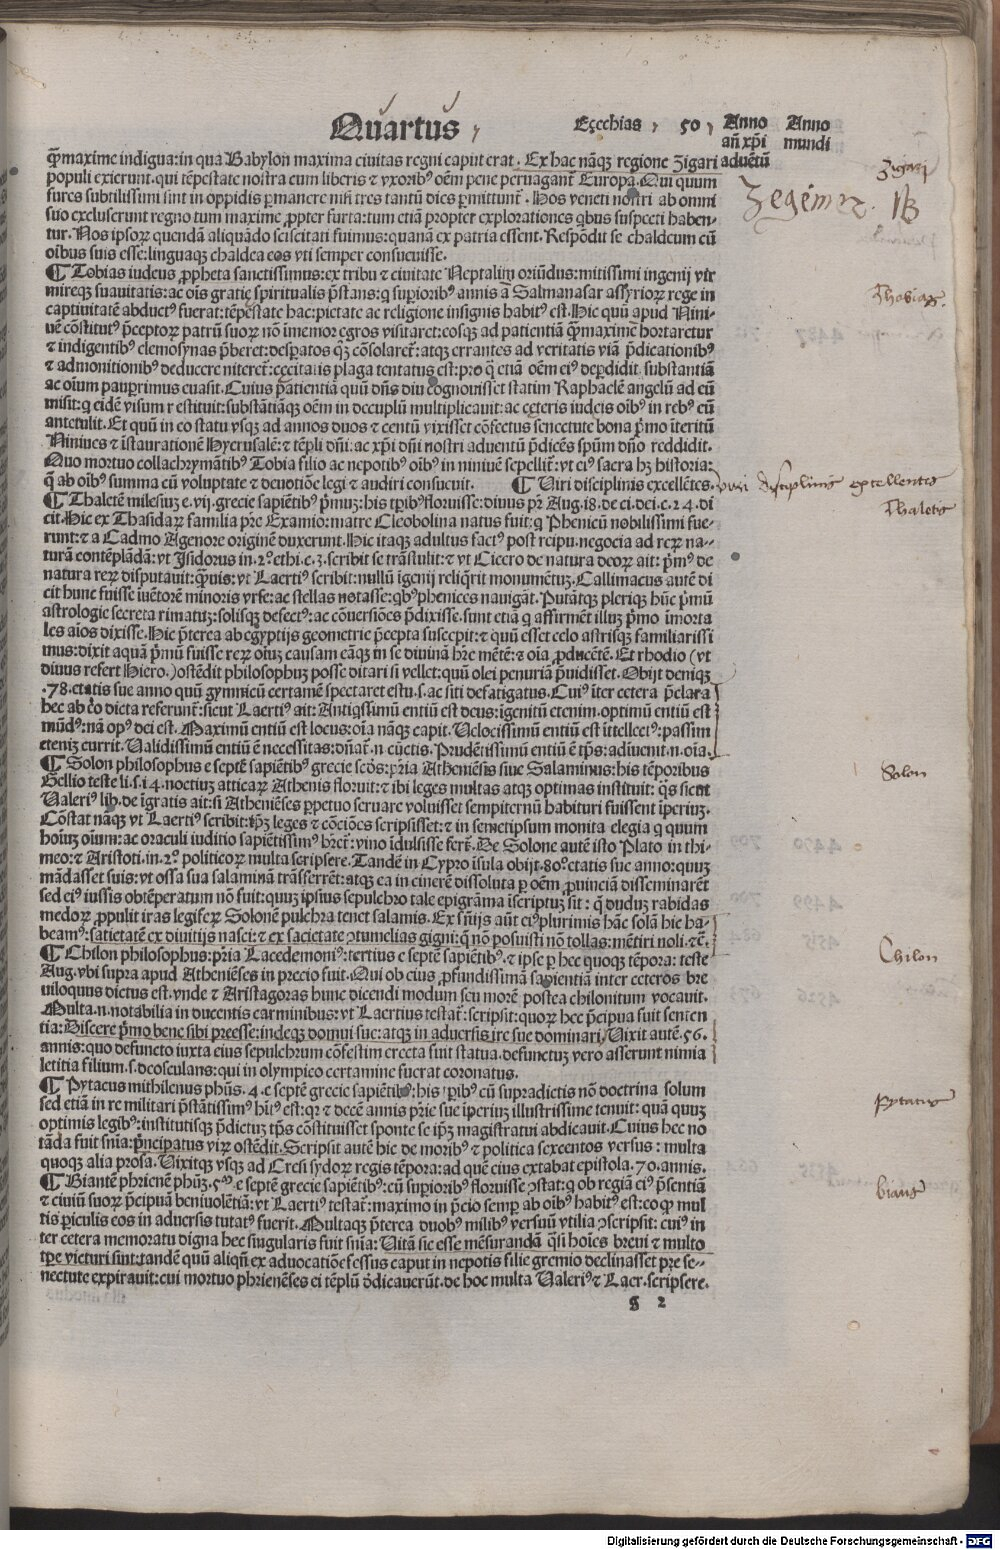 Quartus
Ezechias 50 Anno Anno
añ xp̄i mundi
aduētū
q̄maxime indigua: in qua Babylon maxima ciuitas regni caput erat. Ex hac nāq̨ regione Zigari
populi exierunt. qui tēpestate nostra cum liberis ⁊ vxorib⁹ oēm pene peruagant̄ Europa. Qui quum
fures subtilissimi sint in oppidis p̄manere nisi tres tantū dies p̄mittunt̄. Hos veneti nostri ab omni
suo excluserunt regno tum maxime ꝓpter furta: tum etiā propter explorationes qbus suspecti haben-
tur. Nos ipsoꝝ quendā aliquādo sciscitati fuimus: quana ex patria essent. Respōdit se chaldeum cū
oībus suis esse: linguaq̨ chaldea eos vti semper consueuisse.
¶ Tobias iudeus ꝓpheta sanctissimus: ex tribu ⁊ ciuitate Neptalim oriūdus: mitissimi ingenij vir
mireq̨ suauitatis: ac oīs gratie spiritualis p̄stans: q supiorib⁹ annis a Salmanasar assyrioꝝ rege in
captiuitatē abduct⁹ fuerat: tēpestate hac: pietate ac religione insignis habit⁹ est. Hic quū apud Nini-
uē cōstitut⁹ p̄ceptoꝝ patrū suoꝝ nō īmemor egros visitaret: eosq̨ ad patientiā q̄maxime hortaretur
⁊ indigentib⁹ elemosynas p̄beret: despatos q̨ cōsolaret̄: atq̨ errantes ad veritatis viā p̄dicationib⁹
⁊ admonitionib⁹ deducere niteret̄: cecitatis plaga tentatus est: pro q̄ etiā oēm ei⁹ depdidit substantiā
ac oīum pauprimus euasit. Cuius patientiā quū dn̄s diu cognouisset statim Raphaelē angelū ad eū
misit: q eidē visum restituit: substātiāq̨ oēm in decuplū multiplicauit: ac ceteris iudeis oīb⁹ in reb⁹ eū
antetulit. Et quū in eo statu vsq̨ ad annos duos ⁊ centū vixisset cōfectus senectute bona p̄mo īteritū
Niniues ⁊ īstaurationē Hyerusalē: ⁊ tēpli dn̄i: ac xp̄i dn̄i nostri aduentū p̄dicēs sp̄um dn̄o reddidit.
Quo mortuo collachrymātib⁹ Tobia filio ac nepotib⁹ oīb⁹ in niniuē sepellit̄: vt ei⁹ sacra hꝫ historia:
q̄ ab oīb⁹ summa cū voluptate ⁊ deuotiōe legi ⁊ audiri consueuit. ¶ Viri disciplinis excellētes.
¶ Thaletē milesiuꝫ e. vij. grecie sapiētib⁹ p̄muꝫ: his tp̄ib⁹ floruisse: diuus pr̄ Aug. 18. de ci. dei. c. 24. di
cit. Hic ex Thasidaꝝ familia pr̄e Examio: matre Cleobolina natus fuit: q Phenicū nobilissimi fue-
runt: ⁊ a Cadmo Agenore originē duxerunt. Hic itaq̨ adultus fact⁹ post reipu. negocia ad reꝝ na-
turā contēplādā: vt Isidorus in. 2º ethi. c. 3. scribit se trāstulit: ⁊ vt Cicero de natura deoꝝ ait: p̄m⁹ de
natura reꝝ disputauit: q̄uis: vt Laerti⁹ scribit: nullū igenij reliq̄rit monumētuꝫ. Callimacus autē di
cit hunc fuisse iuētorē minoris vrse: ac stellas notasse: qb⁹ phenices nauigāt. Putātq̨ pleriq̨ hūc p̄mū
astrologie secreta rimatuꝫ: solisq̨ defect⁹: ac cōuersiōes p̄dixisse. sunt etiā q affirmēt illuꝫ p̄mo īmorta
les aīos dixisse. Hic p̄terea ab egyptijs geometrie p̄cepta suscepit: ⁊ quū esset celo astrisq̨ familiarissi
mus: dixit aquā p̄mū fuisse reꝝ oīuꝫ causam eāq̨ in se diuinā hr̄e mētē: ⁊ oīa ꝓducētē. Et rhodio (vt
diuus refert Hiero.) ostēdit philosophuꝫ posse ditari si vellet: quū olei penuriā p̄uidisset. Obijt deniq̨
.78. etatis sue anno quū gymnicū certamē spectaret estu. s. ac siti defatigatus. Cui⁹ īter cetera p̄clara
hec ab eo dicta referunt̄: sicut Laerti⁹ ait: Antiqssimū entiū est deus: īgenitū etenim. optimū entiū est
mūd⁹: nā op⁹ dei est. Maximū entiū est locus: oīa nāq̨ capit. Velocissimū entiū est ītellect⁹: passim
eteniꝫ currit. Validissimū entiū ē necessitas: dn̄at̄. n cūctis. Prudētissimū entiū ē tp̄s: adiuenit. n. oīa.
¶ Solon philosophus e septē sapiētib⁹ grecie sc̄ds: pr̄ia Atheniēsis siue Salaminus: his tēporibus
Gellio teste li. s. i4. noctiuꝫ atticaꝝ Athenis floruit: ⁊ ibi leges multas atq̨ optimas instituit: q̄s sicut
Valeri⁹ lib. de īgratis ait: si Atheniēses ꝑpetuo seruare voluisset sempiternū habituri fuissent īperiuꝫ.
Cōstat nāq̨ vt Laerti⁹ scribit: ip̄ꝫ leges ⁊ cōciōes scripsisset: ⁊ in semetipsum monita elegia q quum
hoīuꝫ oīum: ac oraculi iuditio sapiētissim⁹ hr̄et̄: vino īdulsisse fert̄. De Solone autē isto Plato in thi-
meo: ⁊ Aristoti. in. 2º politicoꝝ multa scripsere. Tandē in Cypro īsula obijt. 80º etatis sue anno: quuꝫ
mādasset suis: vt ossa sua salaminā trāsferrēt: atq̨ ea in cinerē dissoluta p oēm ꝓuinciā disseminarēt
sed ei⁹ iussis obtēperatum nō fuit: quuꝫ ipsius sepulchro tale epigrāma iscriptuꝫ sit: q̄ duduꝫ rabidas
medoꝝ ꝓpulit iras legiferꝝ Solonē pulchra tenet salamis. Ex sn̄ijs aūt ei⁹ plurimis hāc solā hic ha-
beam⁹: satietatē ex diuitijs nasci: ⁊ ex sacietate ꝯtumelias gigni: q̄ nō posuisti nō tollas: mētiri noli. ⁊c̄.
¶ Chilon philosophus: pr̄ia Lacedemoni⁹: tertius e septē sapiētib⁹. ⁊ ipse p hec quoq̨ tēpora: teste
Aug. vbi supra apud Atheniēses in precio fuit. Qui ob eius ꝓfundissimā sapientiā inter ceteros bre
uiloquus dictus est. vnde ⁊ Aristagoras hunc dicendi modum seu morē postea chilonitum vocauit.
Multa. n. notabilia in ducentis carminibus: vt Laertius testat̄: scripsit: quoꝝ hec p̄cipua fuit senten
tia: Discere p̄mo bene sibi preesse: indeq̨ domui sue: atq̨ in aduersis ire sue dominari. Vixit autē. 56.
annis: quo defuncto iuxta eius sepulchrum cōfestim erecta fuit statua. defunctuꝫ vero asserunt nimia
letitia filium. s. deosculans: qui in olympico certamine fuerat coronatus.
¶ Pytacus mithilenus ph̄us. 4. e septē grecie sapiētib⁹: his tp̄ib⁹ cū supradictis nō doctrina solum
sed etiā in re militari p̄stātissim⁹ hīt⁹ est: qꝛ ⁊ decē annis pr̄ie sue īperiuꝫ illustrissime tenuit: quā quuꝫ
optimis legib⁹: institutisq̨ p̄dictuꝫ tp̄s cōstituisset sponte se ip̄ꝫ magistratui abdicauit. Cuius hec no
tāda fuit sn̄ia: p̄ncipatus viꝝ ostēdit. Scripsit autē hic de morib⁹ ⁊ politica sexcentos versus: multa
quoq̨ alia prosa. Vixitq̨ vsq̨ ad Cresi sydoꝝ regis tēpora: ad quē eius extabat epistola. 70. annis.
¶ Biantē phrienē ph̄uꝫ. 5ᵐ. e septē grecie sapiētib⁹: cū supiorib⁹ floruisse ꝯstat: q ob regiā ei⁹ p̄sentiā
⁊ ciuiū suoꝝ p̄cipuā beniuolētiā: vt Laerti⁹ testat̄: maximo in p̄cio semp ab oīb⁹ habit⁹ est: eo q̄ mul
tis p̄iculis eos in aduersis tutat⁹ fuerit. Multaq̨ p̄terea duob⁹ milib⁹ versuū vtilia ꝯscripsit: cui⁹ in
ter cetera memoratu digna hec singularis fuit sn̄ia: Vitā sic esse mēsurandā q̄si hoīes breui ⁊ multo
tp̄e victuri sint: tandē quū aliqn̄ ex aduocatiōe fessus caput in nepotis filie gremio declinasset pre se-
nectute expirauit: cui mortuo phrienēses ei tēplū ōdicauerūt. de hoc multa Valeri⁹ ⁊ Laer. scripsere.
g 2
Zigarj
Zegeiner
Thobias
viri disciplinis excellentes
Thaletis
Solon
Chilon
Pytacus
bians
Digitalisierung gefördert durch die Deutsche Forschungsgemeinschaft - DFG